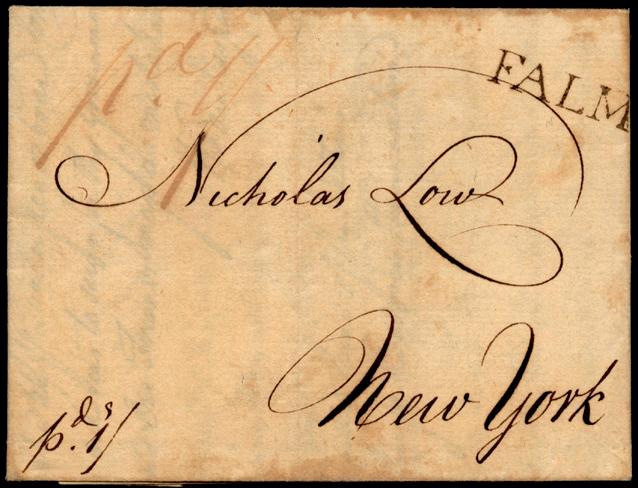 pd 1/
FALM
Nicholas Low
New York
pd. 1s/